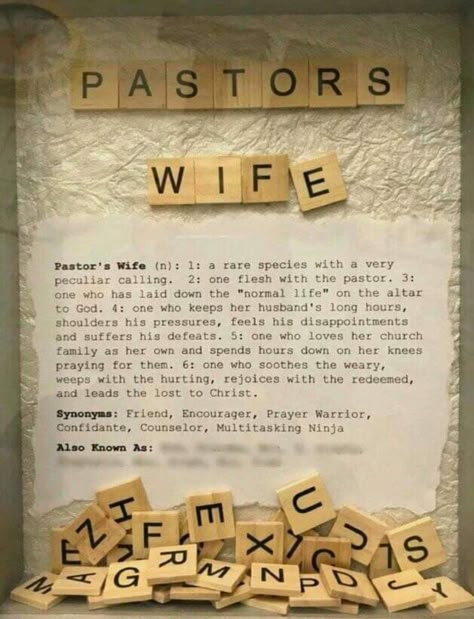 PASTORS
WIFE
Pastor's Wife (n): 1: a rare species with a very
peculiar calling. 2: one flesh with the pastor. 3:
one who has laid down the "normal life" on the altar
to God. 4: one who keeps her husband's long hours,
shoulders his pressures, feels his disappointments
and suffers his defeats. 5: one who loves her church
family as her own and spends hours down on her knees
praying for them. 6: one who soothes the weary,
weeps with the hurting, rejoices with the redeemed,
and leads the lost to Christ.
Synonyms: Friend, Encourager, Prayer Warrior,
Confidante, Counselor, Multitasking Ninja
Also Known As:
H U
Z F E J S
E X
M A G R M N P D J Y